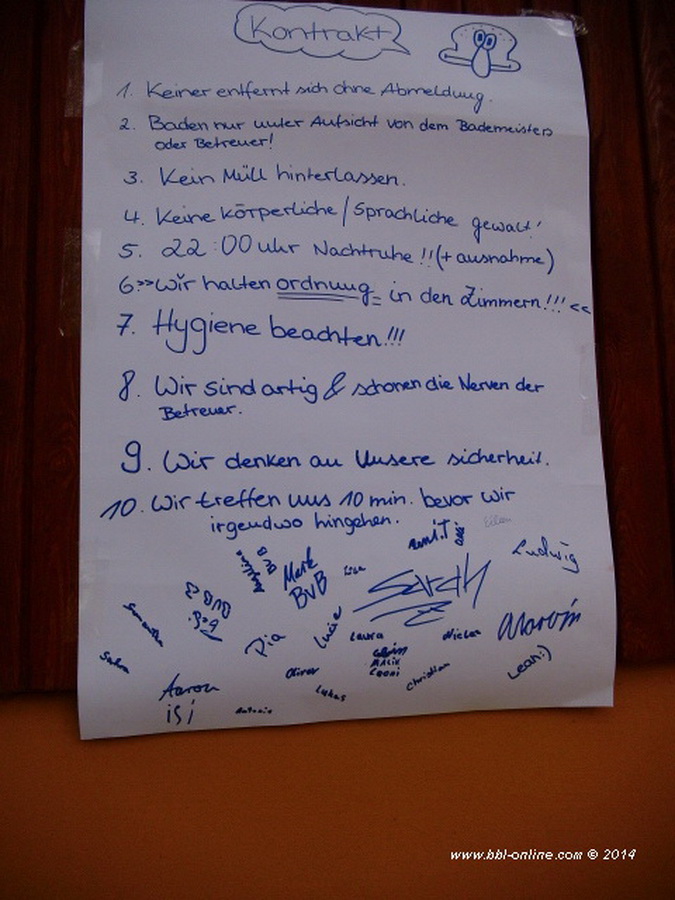 Kontrakt
1. Keiner entfernt sich ohne Abmeldung.
2. Baden nur unter Aufsicht von dem Bademeisters
oder Betreuer!
3. Kein Müll hinterlassen.
4. Keine körperliche/Sprachliche gewalt!
5. 22:00 uhr Nachtruhe!!(+ausnahme)
6>>Wir halten ordnung in den Zimmern!!!<<
7. Hygiene beachten!!!
8. Wir sind artig & schonen die Nerven der
Betreuer.
9. Wir denken an Unsere sicherheit.
10. Wir treffen uns 10 min. bevor wir
irgendwo hingehen.
Ludwig
Angelina
BVB
Maik
BVB
Lisa
Sarah
BVB <3
Samantha
Pia
Lucie
Laura
Niclas
Marvin
MALIK
Leoni
Leah:)
Oliver
Christian
Aaron
Lukas
isi
Antonia
www.bbl-online.com © 2014